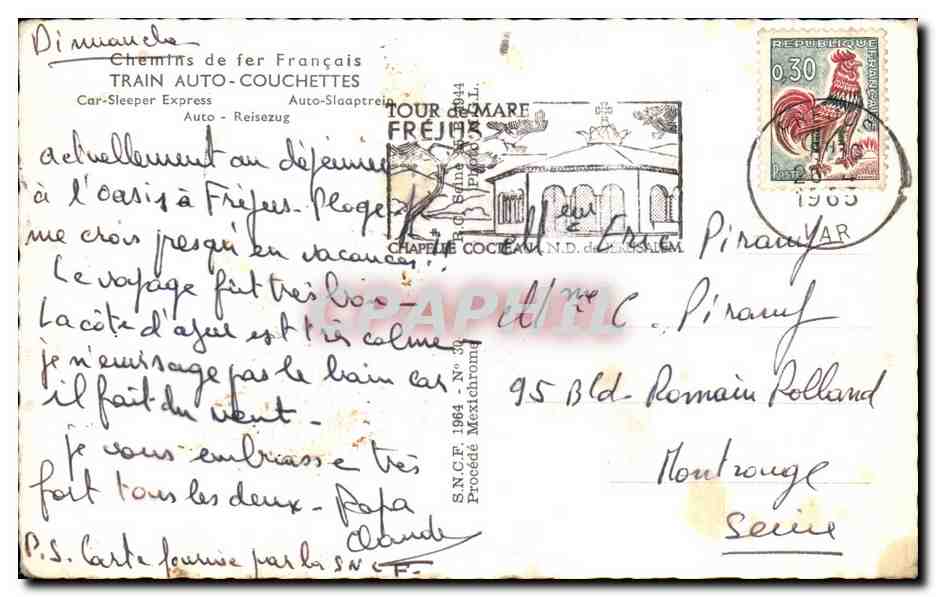 Dimanche
Chemins de fer Français
TRAIN AUTO-COUCHETTES
Car-Sleeper Express Auto-Slaaptrein
Auto - Reisezug
actuellement au déjeuner
à l'oasis à Fréjus-Plage je
me crois presqu'en vacances!!
Le voyage fut très bon -
La côte d'azur est très calme,
je n'envisage pas le bain car
il fait du vent -
je vous embrasse très
fort tous les deux - Papa
Claude
P.S. Carte fournie par la SNCF -
S.N.C.F. 1964 - N° 30
Procédé Mexichrome
R.C. Seine 1944
Photo
TOUR de MARE
FRÉJUS
CHAPELLE COCTEAU N.D. de JERUSALEM
REPUBLIQUE FRANÇAISE
0,30
POSTES
1965
VAR
Mieur Luc
Mme C.
95 Bld. Romain Rolland
Montrouge
Seine
CPAPHIL